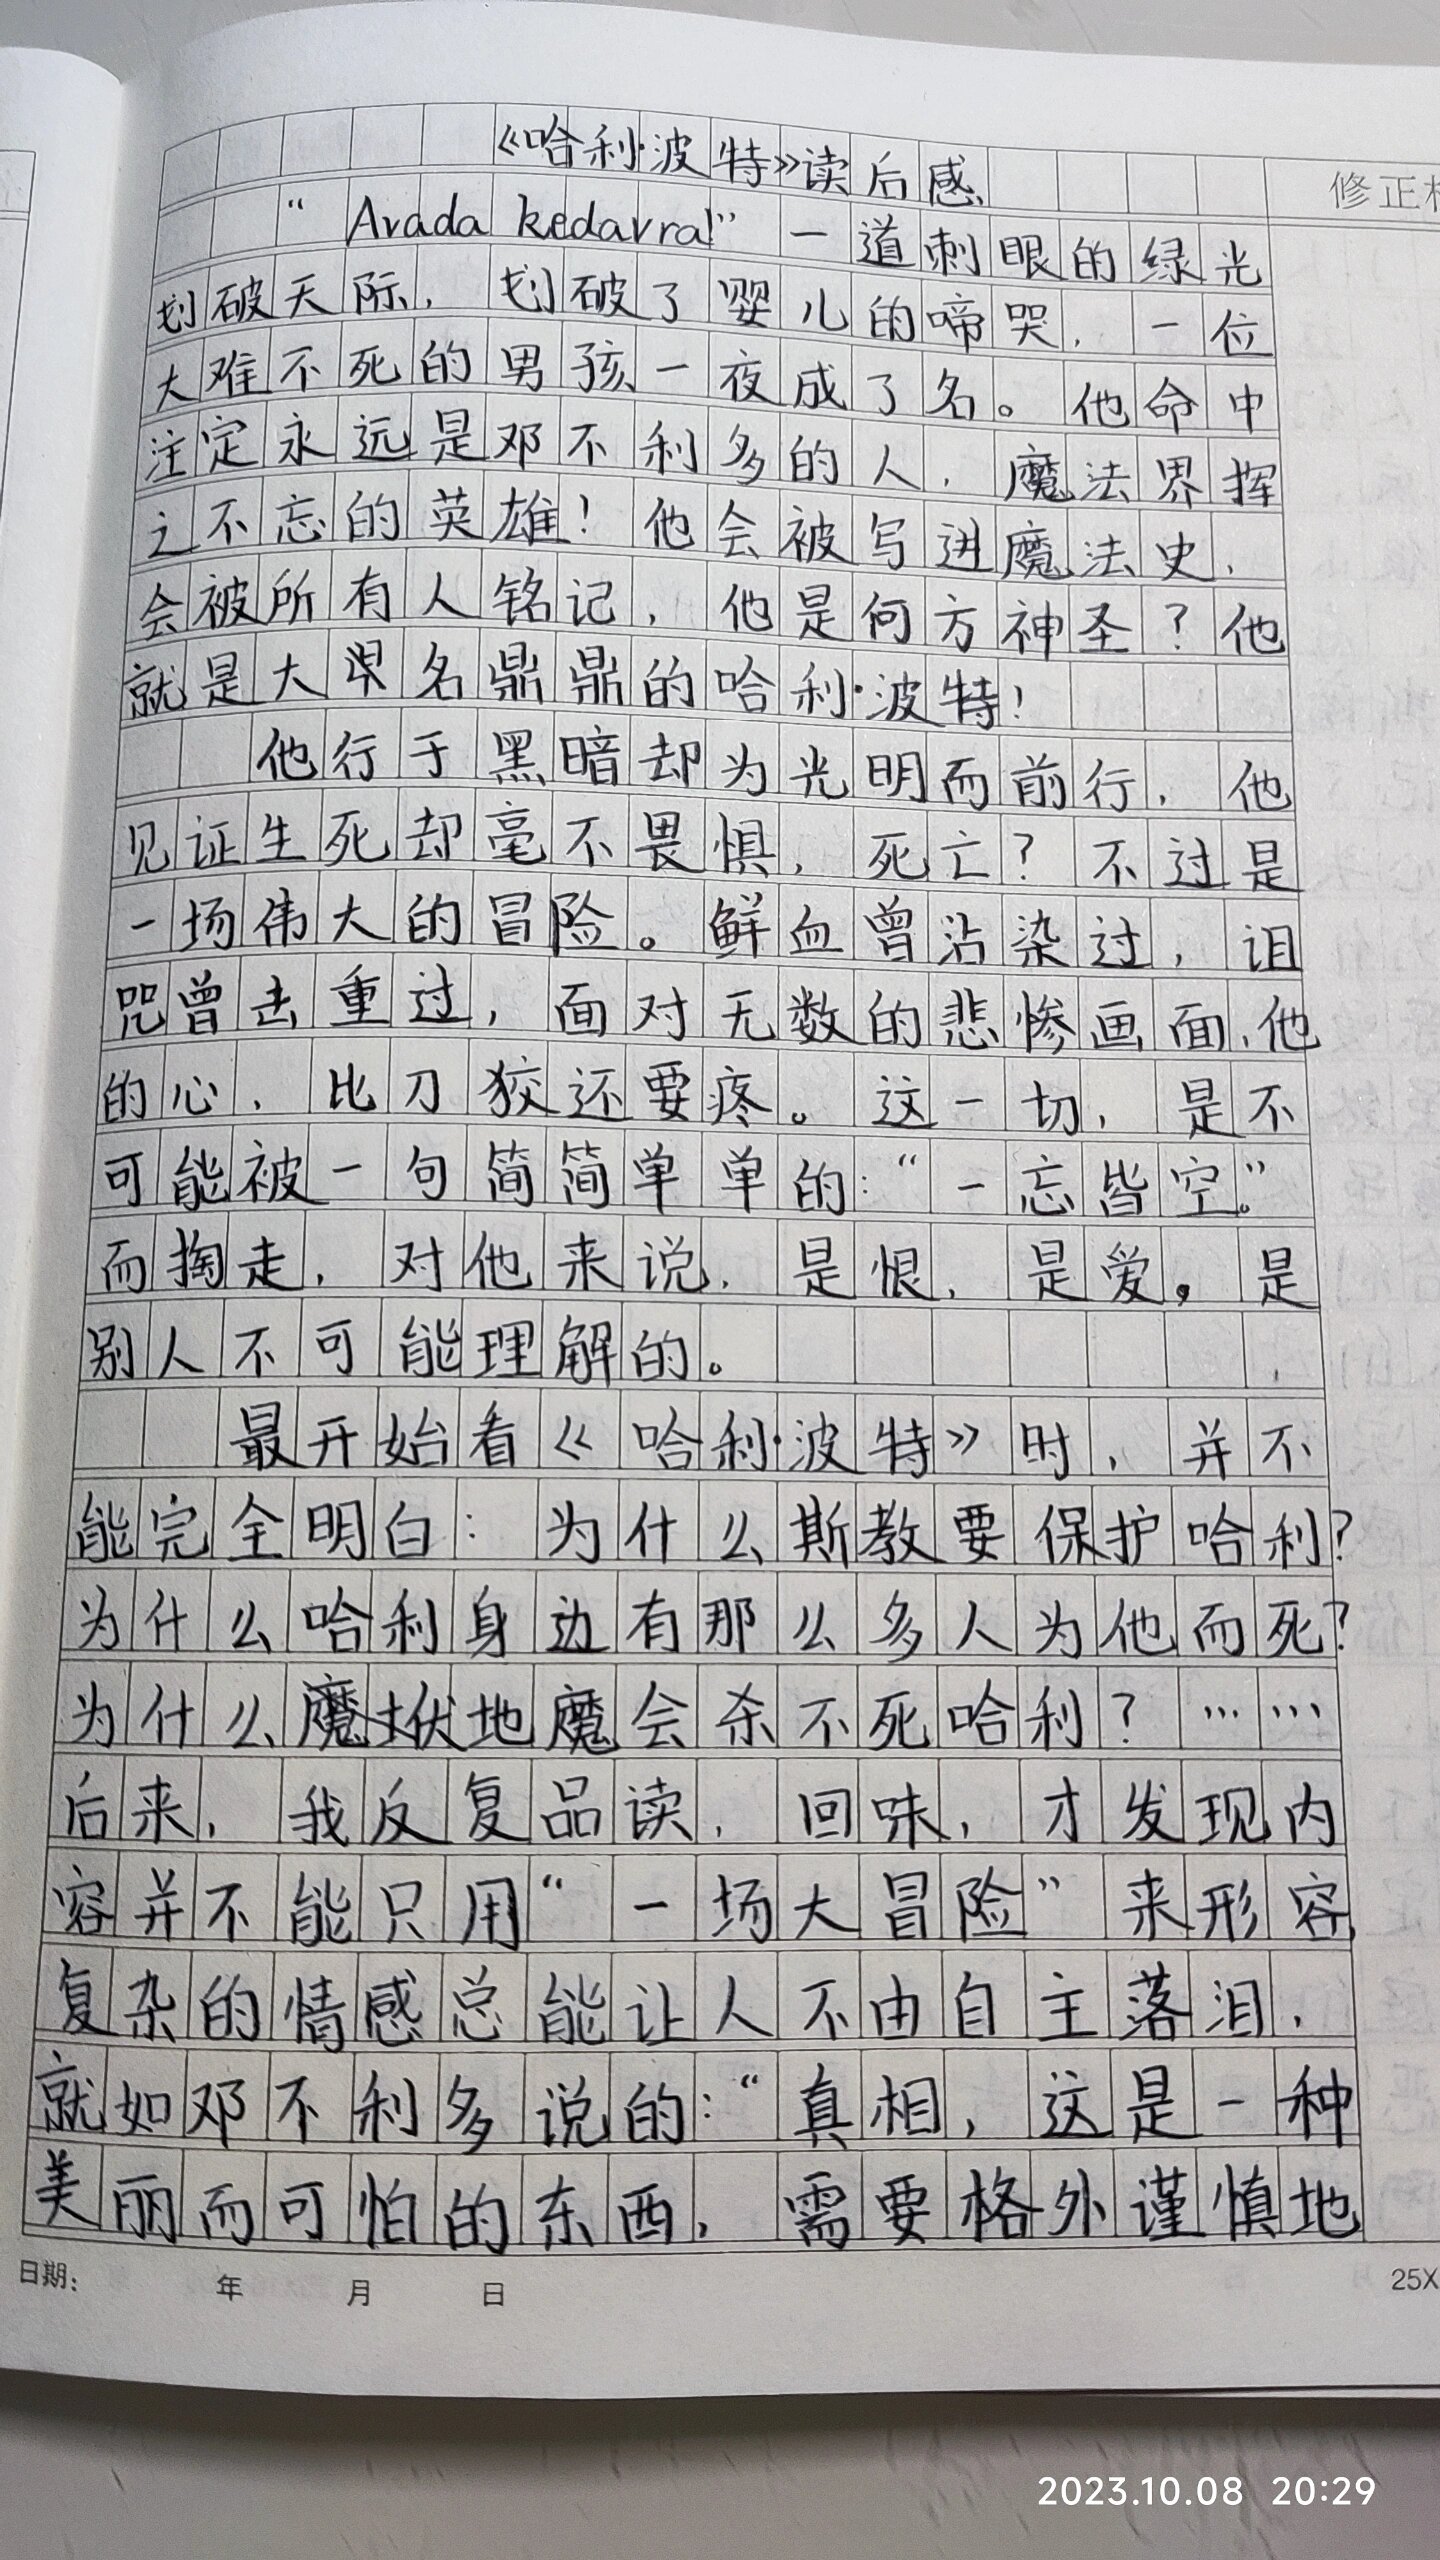 《哈利·波特》读后感
“Avada kedavra!”一道刺眼的绿光
划破天际，划破了婴儿的啼哭，一位
大难不死的男孩一夜成了名。他命中
注定永远是邓不利多的人，魔法界挥
之不忘的英雄！他会被写进魔法史，
会被所有人铭记，他是何方神圣？他
就是大名鼎鼎的哈利·波特！
他行于黑暗却为光明而前行，他
见证生死却毫不畏惧，死亡？不过是
一场伟大的冒险。鲜血曾沾染过，诅
咒曾击重过，面对无数的悲惨画面，他
的心，比刀狡还要疼。这一切，是不
可能被一句简简单单的：“一忘皆空。”
而掏走，对他来说，是恨，是爱。是
别人不可能理解的。
最开始看《哈利·波特》时，并不
能完全明白：为什么斯教要保护哈利？
为什么哈利身边有那么多人为他而死？
为什么魔伏地魔会杀不死哈利？……
后来，我反复品读，回味，才发现内
容并不能只用“一场大冒险”来形容，
复杂的情感总能让人不由自主落泪，
就如邓不利多说的：“真相，这是一种
美丽而可怕的东西，需要格外谨慎地
修正
日期： 年 月 日
25X
2023.10.08 20:29